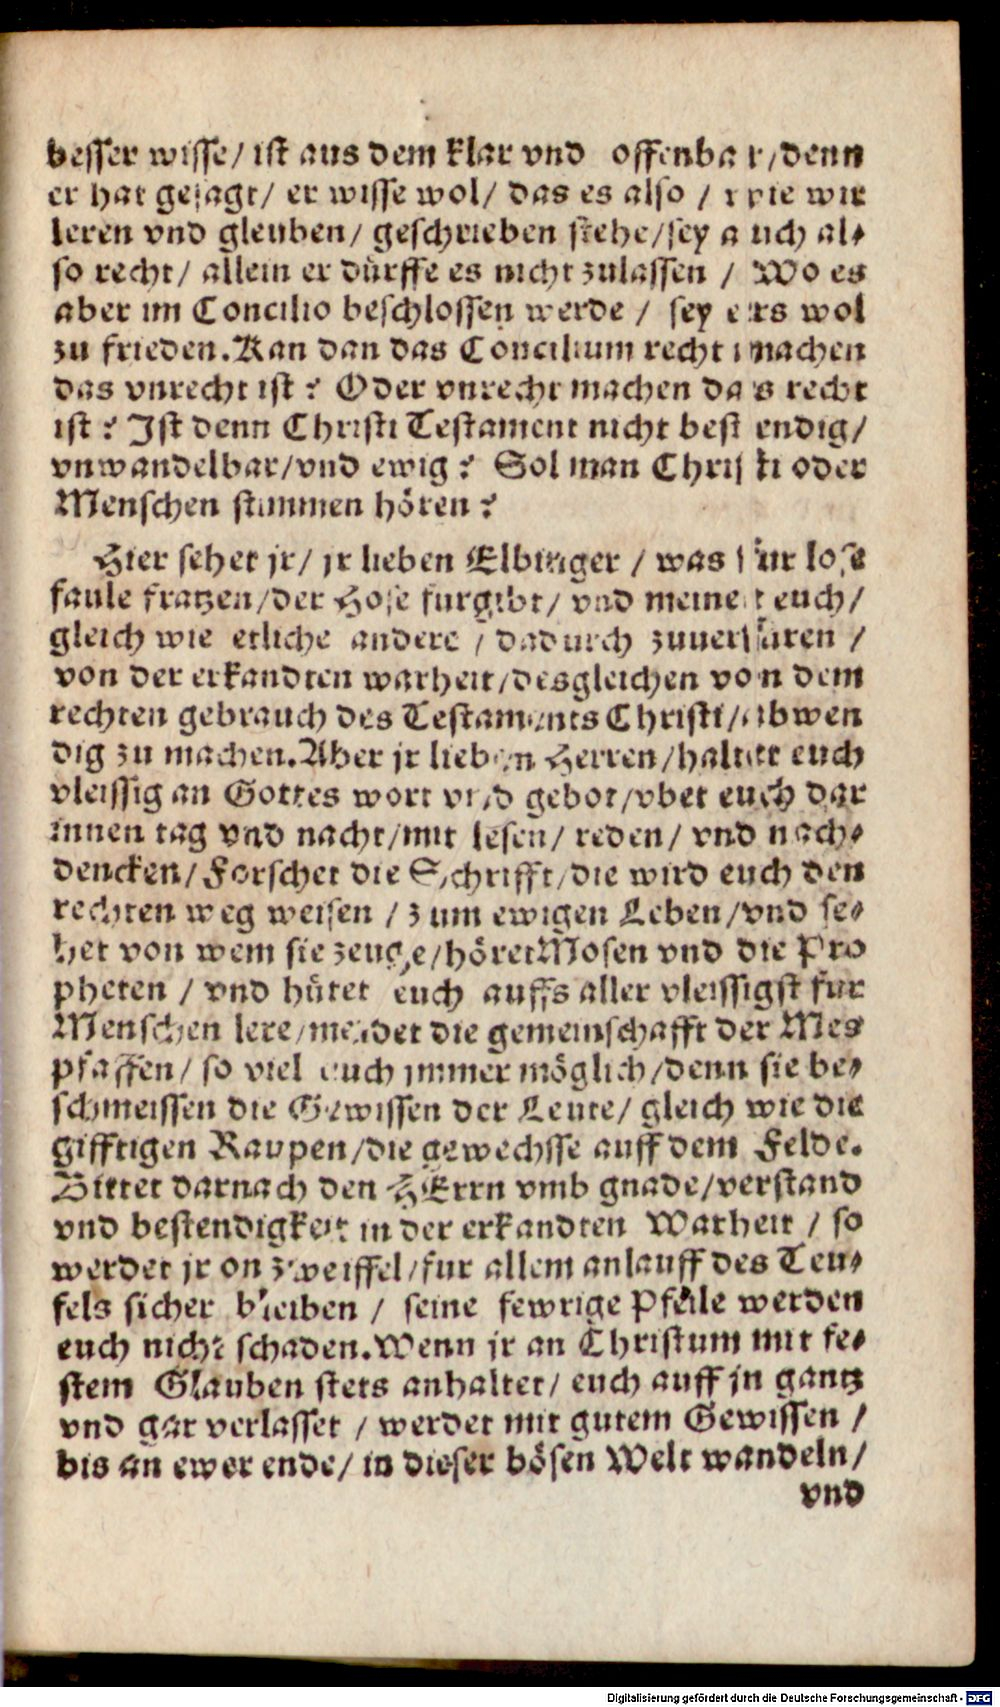 besser wisse/ ist aus dem klar vnd offenbar/denn
er hat gesagt/ er wisse wol/ das es also / wie wir
leren vnd gleuben/ geschrieben stehe/sey auch al⸗
so recht/ allein er dürffe es nicht zulassen / Wo es
aber im Concilio beschlossen werde / sey ers wol
zu frieden. Kan dan das Concilium recht machen
das vnrecht ist? Oder vnrecht machen das recht
ist? Ist denn Christi Testament nicht bestendig/
vnwandelbar/vnd ewig? Sol man Christi oder
Menschen stimmen hören?
Hier sehet jr/ jr lieben Elbinger / was für lose
faule fratzen/der Hose furgibt/ vnd meinet euch/
gleich wie etliche andere / dadurch zuuerfüren /
von der erkandten warheit/desgleichen von dem
rechten gebrauch des Testaments Christi/abwen
dig zu machen. Aber jr lieben Herren/haltet euch
vleissig an Gottes wort vnd gebot/vbet euch dar
innen tag vnd nacht/mit lesen/ reden/ vnd nach⸗
dencken/ Forschet die Schrifft/die wird euch den
rechten weg weisen / zum ewigen Leben/vnd se⸗
het von wem sie zeuge/höret Mosen vnd die Pro
pheten / vnd hütet euch auffs aller vleissigst fur
Menschen lere/meidet die gemeinschafft der Mes
pfaffen/ so viel euch jmmer möglich/denn sie be⸗
schmeissen die Gewissen der Leute/ gleich wie die
gifftigen Raupen/die gewechsse auff dem Felde.
Bittet darnach den HErrn vmb gnade/verstand
vnd bestendigkeit in der erkandten Warheit / so
werdet jr on zweiffel/fur allem anlauff des Teu⸗
fels sicher bleiben / seine fewrige Pfeile werden
euch nicht schaden. Wenn jr an Christum mit fe⸗
stem Glauben stets anhaltet/ euch auff jn gantz
vnd gar verlasset / werdet mit gutem Gewissen /
bis an ewer ende/ in dieser bösen Welt wandeln/
vnd
Digitalisierung gefördert durch die Deutsche Forschungsgemeinschaft - DFG